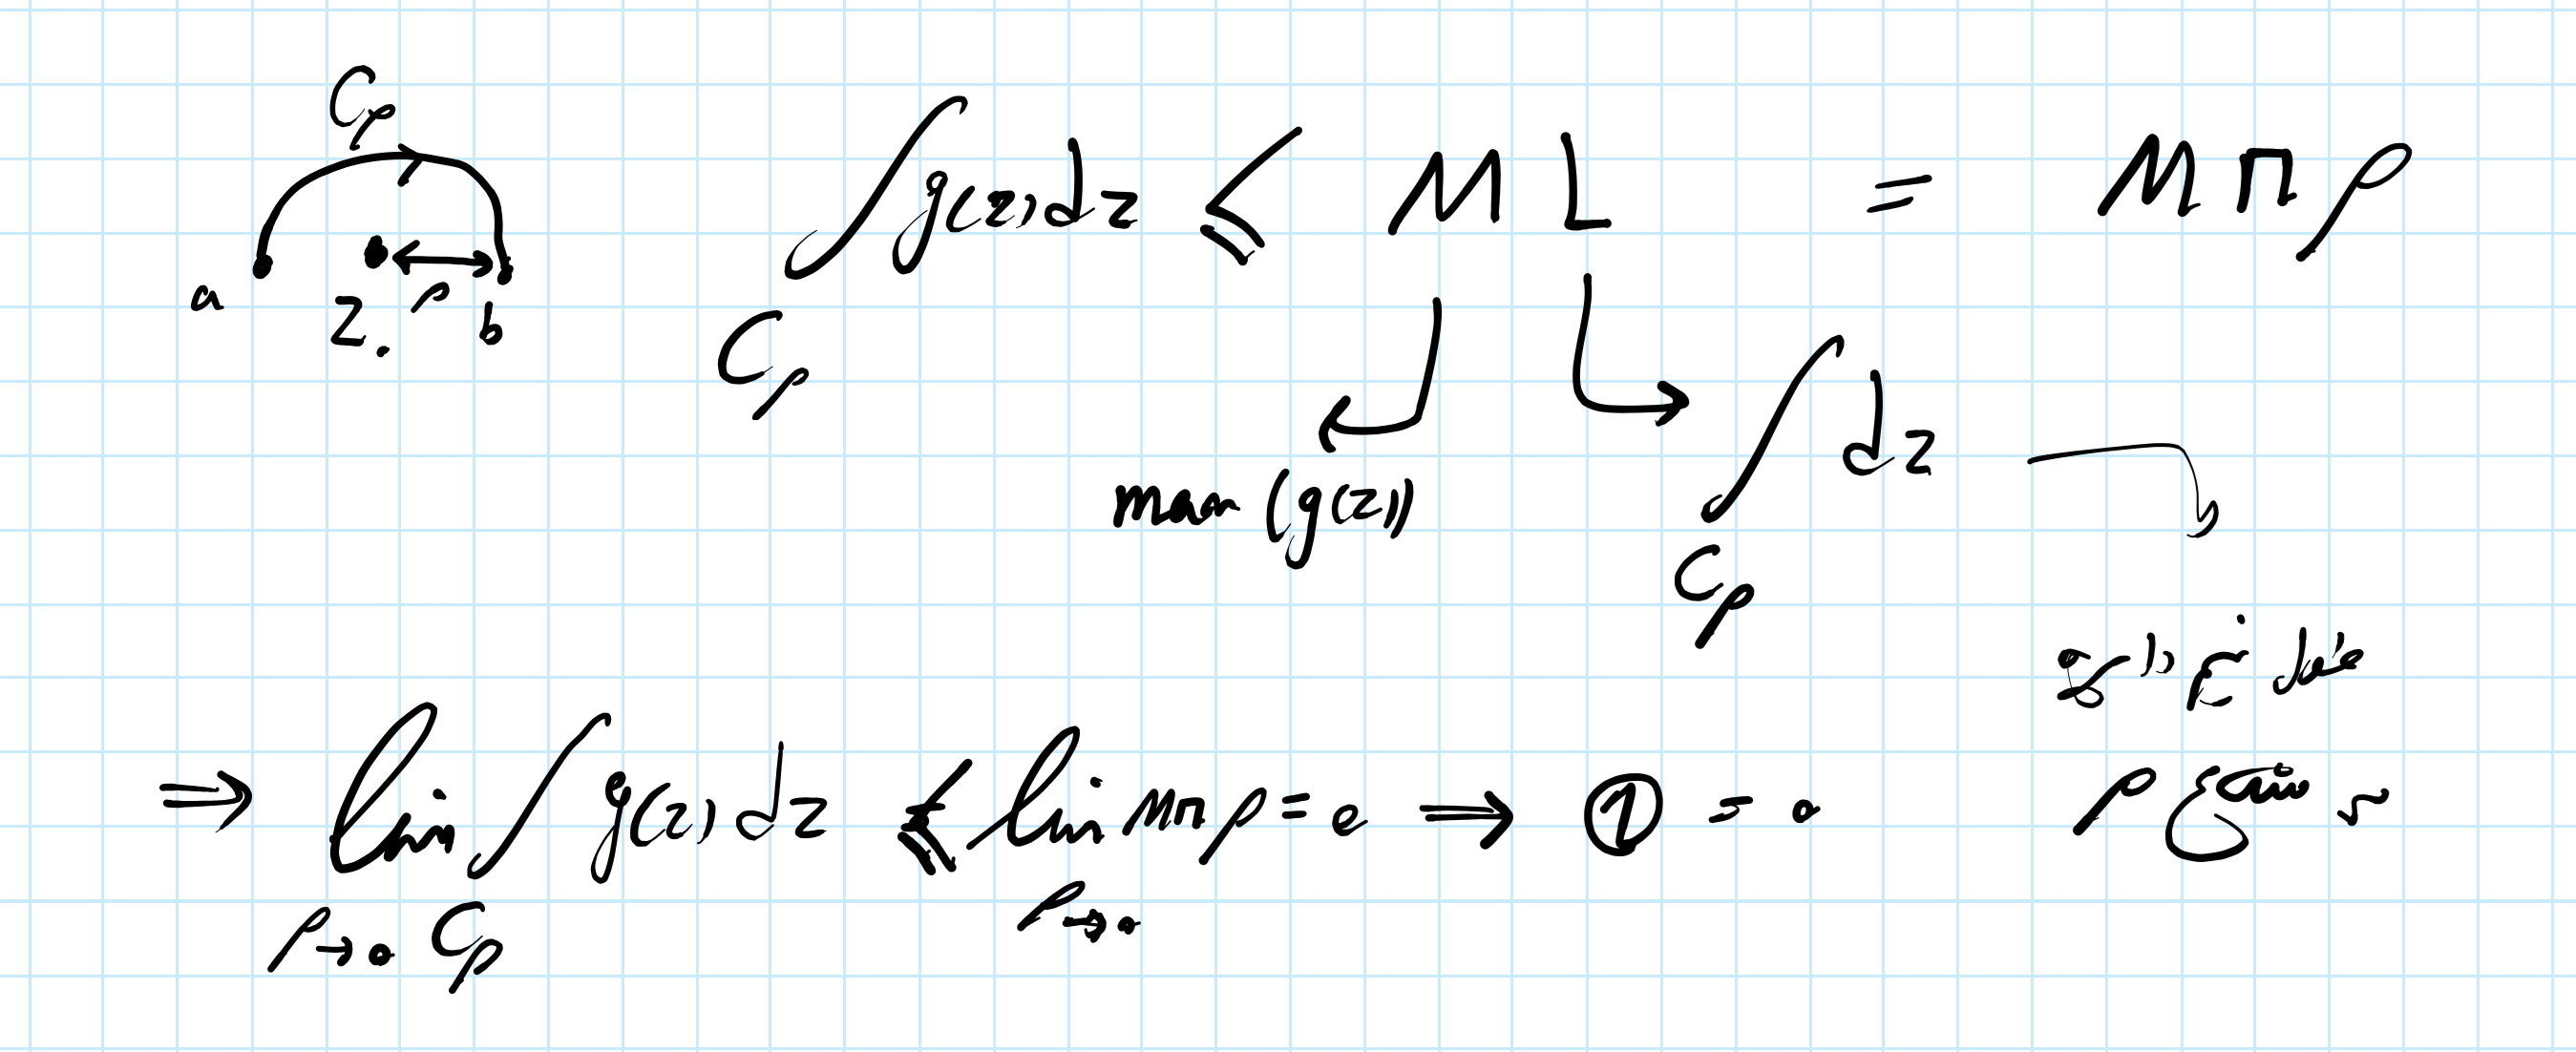 C_ρ
a Z. ρ b
∫_{C_ρ} g(z) dz ≤ ML = Mπρ
max (g(z))
∫_{C_ρ} dz
نصف دایره
ρ
⇒ lim_{ρ→0} ∫_{C_ρ} g(z) dz ≤ lim_{ρ→0} Mπρ = 0 ⇒ ① = 0